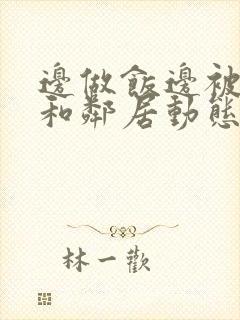 邊做飯邊被
和鄰居動態
林一歡